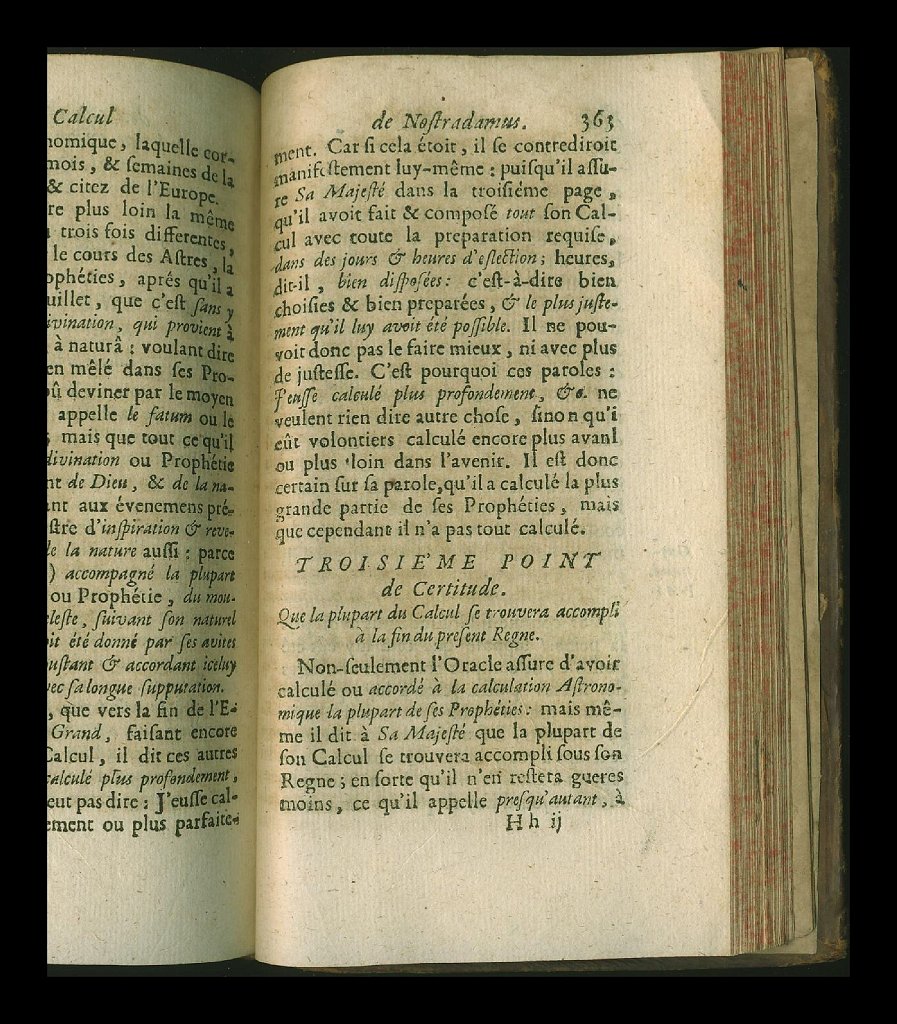 Calcul
nomique, laquelle cor-
mois, & ſemaines de la
& citez de l'Europe.
re plus loin la même
trois fois differentes,
le cours des Aſtres, la
ophéties, aprés qu'il a
uillet, que c'eſt ſans y
ivination, qui provient à
à naturâ : voulant dire
en mêlé dans ſes Pro-
û deviner par le moyen
appelle le fatum ou le
; mais que tout ce qu'il
divination ou Prophétie
nt de Dieu, & de la na-
ant aux évenemens pré-
ſtre d'inſpiration & reve-
de la nature auſſi : parce
) accompagné la plupart
ou Prophétie, du mou-
leſte, ſuivant ſon naturel
oit été donné par ſes avites
uſtant & accordant iceluy
vec ſa longue ſupputation.
, que vers la fin de l'E-
Grand, faiſant encore
Calcul, il dit ces autres
calculé plus profondement,
eut pas dire : J'euſſe cal-
ement ou plus parfaite-
de Noſtradamus. 363
ment. Car ſi cela étoit, il ſe contrediroit
manifeſtement luy-même : puiſqu'il aſſu-
re Sa Majeſté dans la troiſiéme page,
qu'il avoit fait & compoſé tout ſon Cal-
cul avec toute la preparation requiſe,
dans des jours & heures d'eſlection ; heures,
dit-il, bien diſpoſées : c'eſt-à-dire bien
choiſies & bien preparées, & le plus juſte-
ment qu'il luy avoit été poſſible. Il ne pou-
voit donc pas le faire mieux, ni avec plus
de juſteſſe. C'eſt pourquoi ces paroles :
J'euſſe calculé plus profondement, &c. ne
veulent rien dire autre choſe, ſinon qu'i
eût volontiers calculé encore plus avant
ou plus loin dans l'avenir. Il eſt donc
certain ſur ſa parole, qu'il a calculé la plus
grande partie de ſes Prophéties, mais
que cependant il n'a pas tout calculé.
TROISIE'ME POINT
de Certitude.
Que la plupart du Calcul ſe trouvera accompli
à la fin du preſent Regne.
Non-ſeulement l'Oracle aſſure d'avoir
calculé ou accordé à la calculation Aſtrono-
mique la plupart de ſes Prophéties : mais mê-
me il dit à Sa Majeſté que la plupart de
ſon Calcul ſe trouvera accompli ſous ſon
Regne ; en ſorte qu'il n'en reſtera gueres
moins, ce qu'il appelle preſqu'autant, à
H h ij